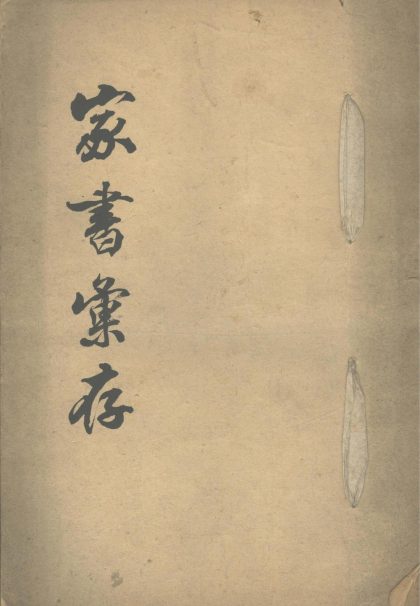 家書彙存